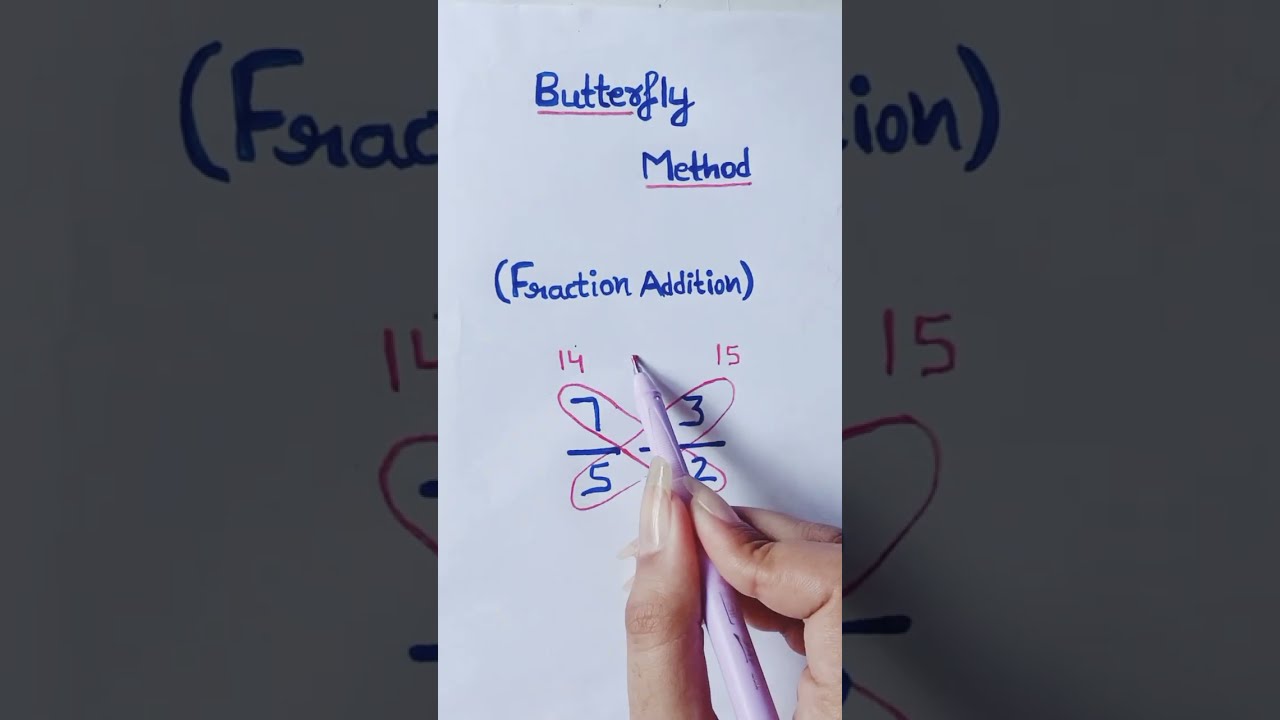 Butterfly
Method
(Fraction Addition)
14 15
7 3
5 2